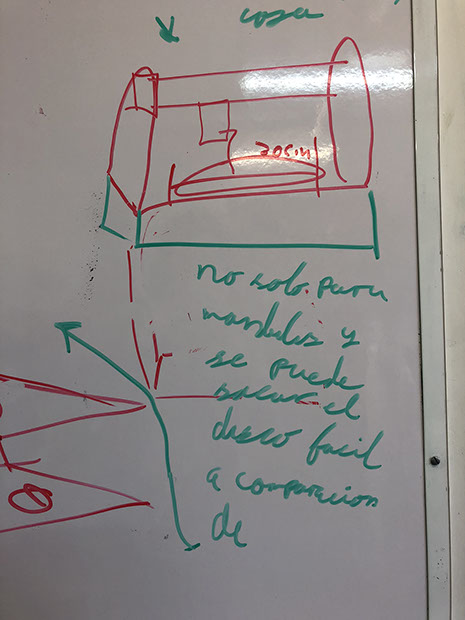 cosa
20cm
no solo para
mandalas y
se puede
sacar el
disco facil
a comparacion
de